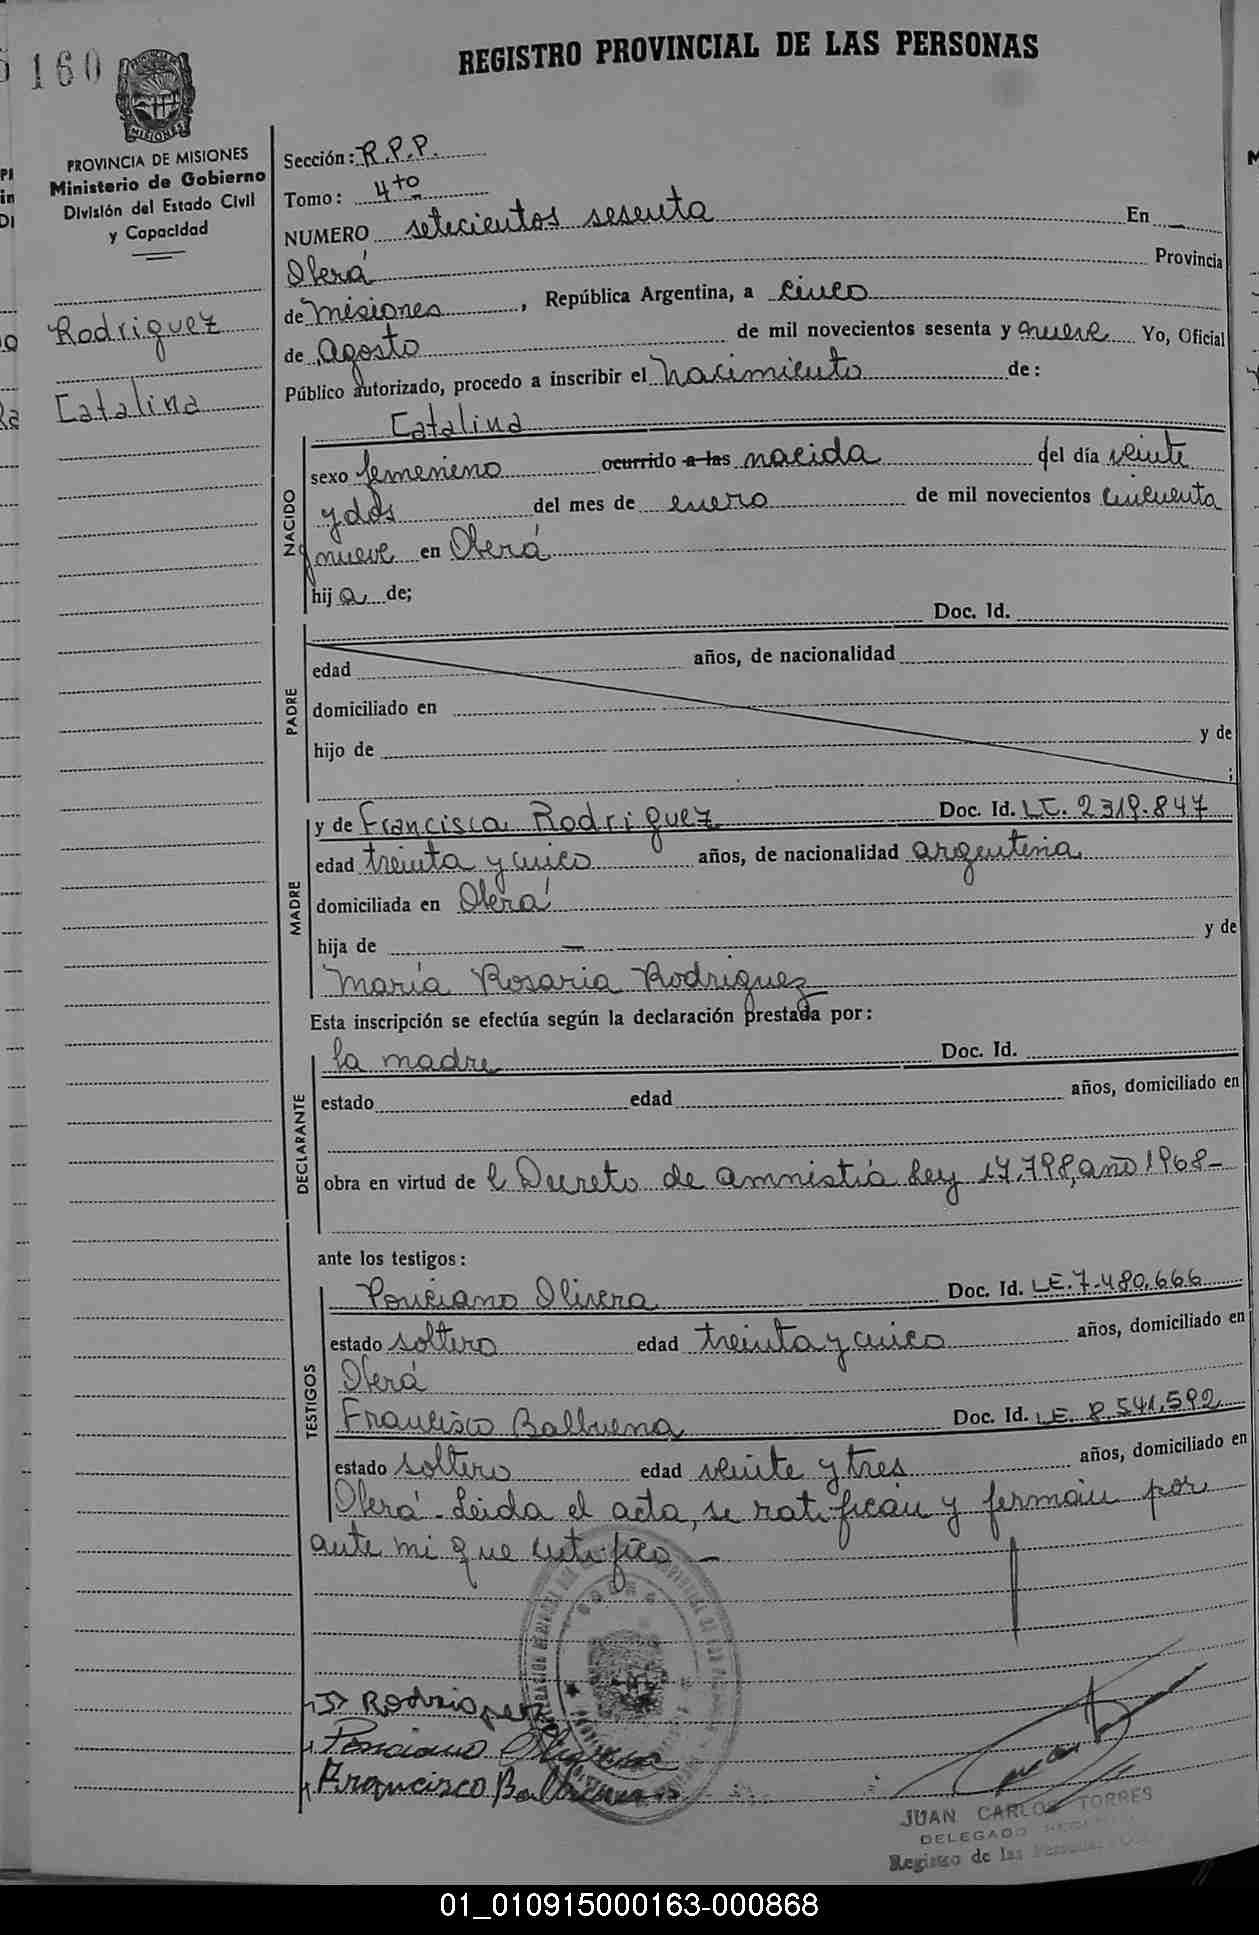 160
REGISTRO PROVINCIAL DE LAS PERSONAS
MISIONES
PROVINCIA DE MISIONES
Ministerio de Gobierno
División del Estado Civil
y Capacidad
Rodriguez
Catalina
Sección: R.P.P.
Tomo: 4to
NUMERO setecientos sesenta En
Oberá Provincia
de Misiones, República Argentina, a cinco
de Agosto de mil novecientos sesenta y nueve Yo, Oficial
Público autorizado, procedo a inscribir el nacimiento de:
Catalina
NACIDO
sexo femenino ocurrido a las nacida del día veinte
y dos del mes de enero de mil novecientos cincuenta
y nueve en Oberá
hija de;
PADRE
Doc. Id.
edad años, de nacionalidad
domiciliado en
hijo de y de
;
MADRE
y de Francisca Rodriguez Doc. Id. LC. 2319.847
edad treinta y cinco años, de nacionalidad argentina
domiciliada en Oberá
hija de — y de
María Rosaria Rodriguez
Esta inscripción se efectúa según la declaración prestada por:
DECLARANTE
la madre Doc. Id.
estado edad años, domiciliado en
obra en virtud de l Decreto de amnistia Ley 17.798, año 1968-
ante los testigos:
TESTIGOS
Ponciano Olivera Doc. Id. LE. 7.480.666
estado soltero edad treinta y cinco años, domiciliado en
Oberá
Francisco Balbuena Doc. Id. LE. 8.541.592
estado soltero edad veinte y tres años, domiciliado en
Oberá. Leida el acta, se ratifican y firman por
ante mi que certifico —
Rodriguez
Ponciano Olivera
Francisco Balbuena
JUAN CARLOS TORRES
DELEGADO
Registro de las Personas
01_010915000163-000868